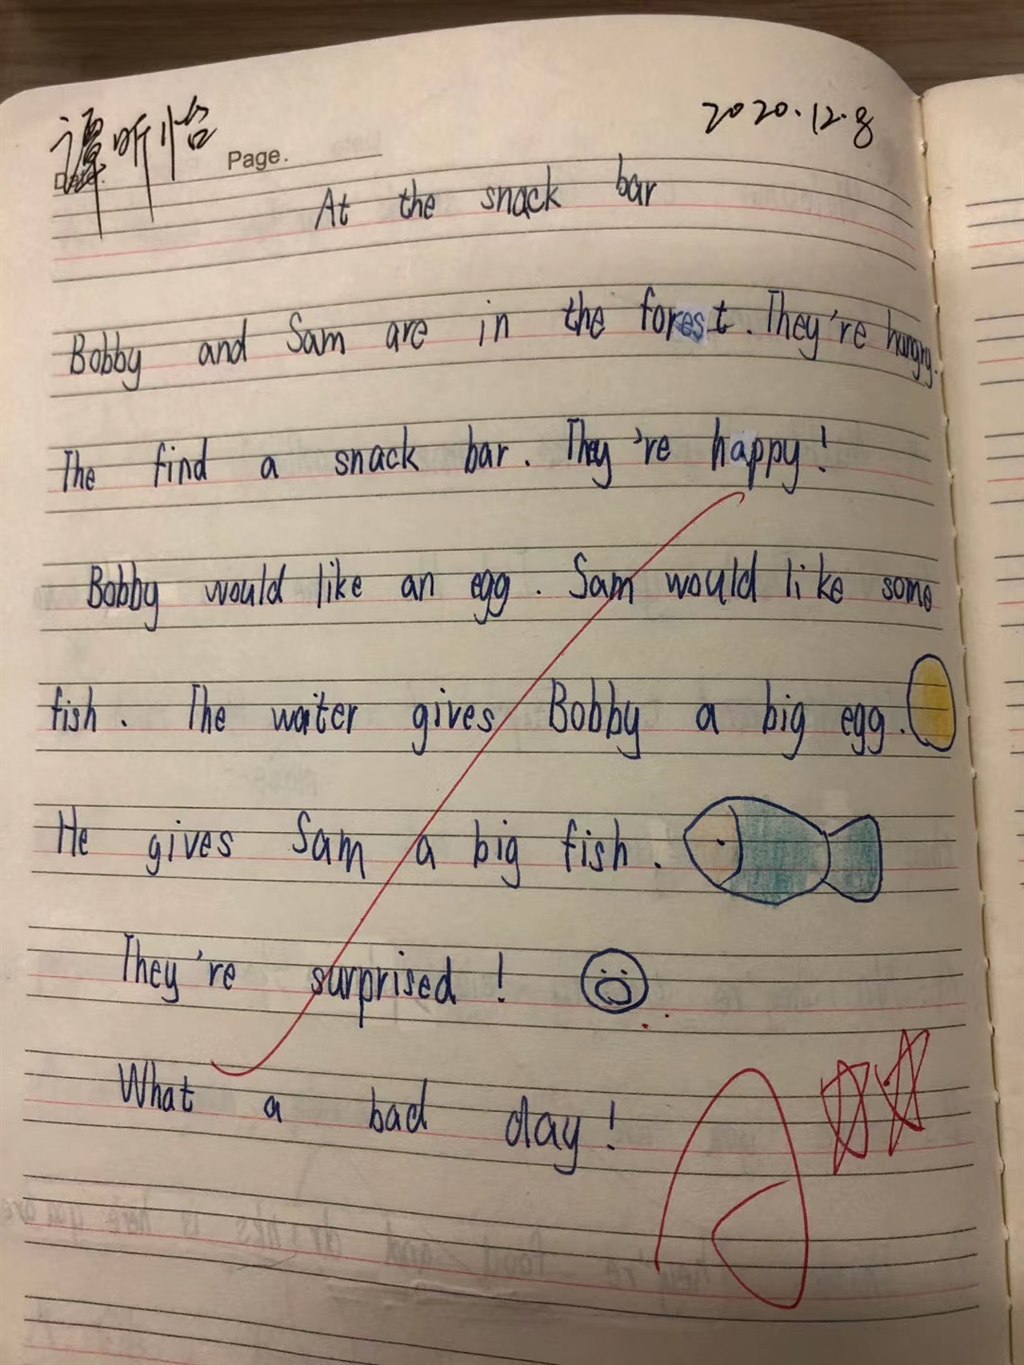 谭昕怡 2020.12.8
Page.
At the snack bar
Bobby and Sam are in the forest. They're hungry.
The find a snack bar. They're happy!
Bobby would like an egg. Sam would like some
fish. The waiter gives Bobby a big egg.
He gives Sam a big fish.
They're surprised!
What a bad day!